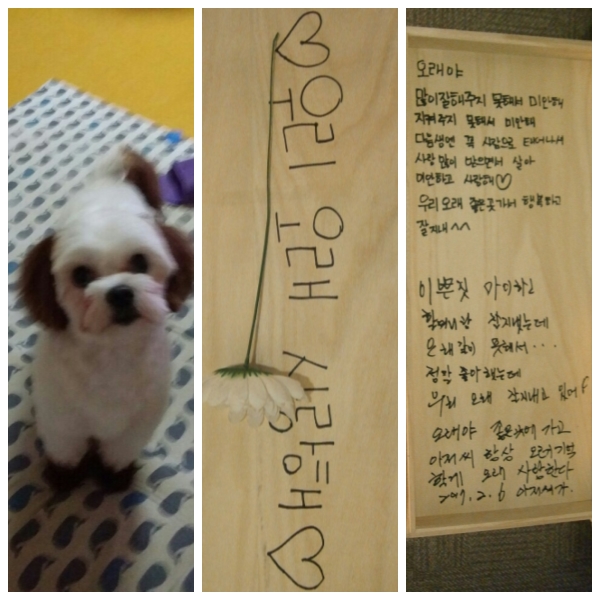 ♡우리 오래 사랑해♡
오래야
많이잘해주지 못해서 미안해
지켜주지 못해서 미안해
다음생엔 꼭 사람으로 태어나서
사랑 많이 받으면서 살아
미안하고 사랑해♡
우리오래 좋은곳가서 행복하고
잘지내 ^^
이쁜짓 마니하고
할머니랑 잘지냈는데
오래같이 못해서...
정말 좋아했는데
우리 오래 잘지내고 있어
오래야 좋은곳에 가고
아저씨 항상 오래기억
할게 오래 사랑한다
2. 6 아저씨가.